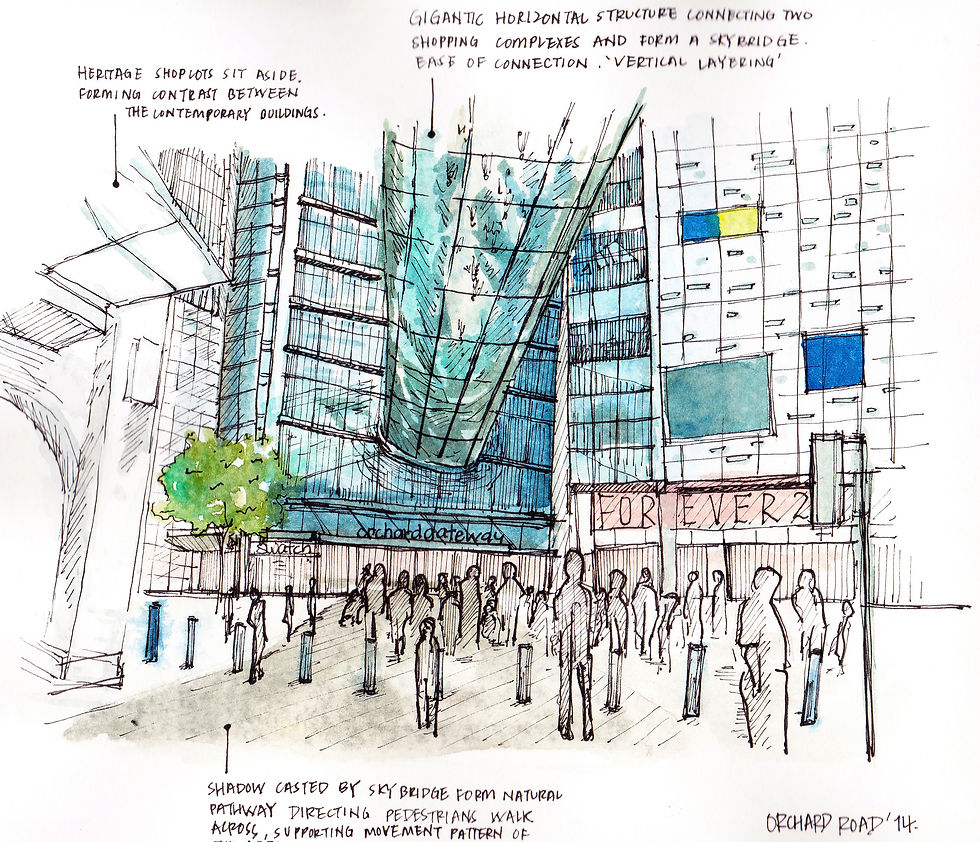 GIGANTIC HORIZONTAL STRUCTURE CONNECTING TWO
SHOPPING COMPLEXES AND FORM A SKYBRIDGE.
EASE OF CONNECTION. 'VERTICAL LAYERING'
HERITAGE SHOPLOTS SIT ASIDE.
FORMING CONTRAST BETWEEN
THE CONTEMPORARY BUILDINGS.
FOREVER 2
orchardgateway
swatch
SHADOW CASTED BY SKYBRIDGE FORM NATURAL
PATHWAY DIRECTING PEDESTRIANS WALK
ACROSS, SUPPORTING MOVEMENT PATTERN OF
ORCHARD ROAD '14.